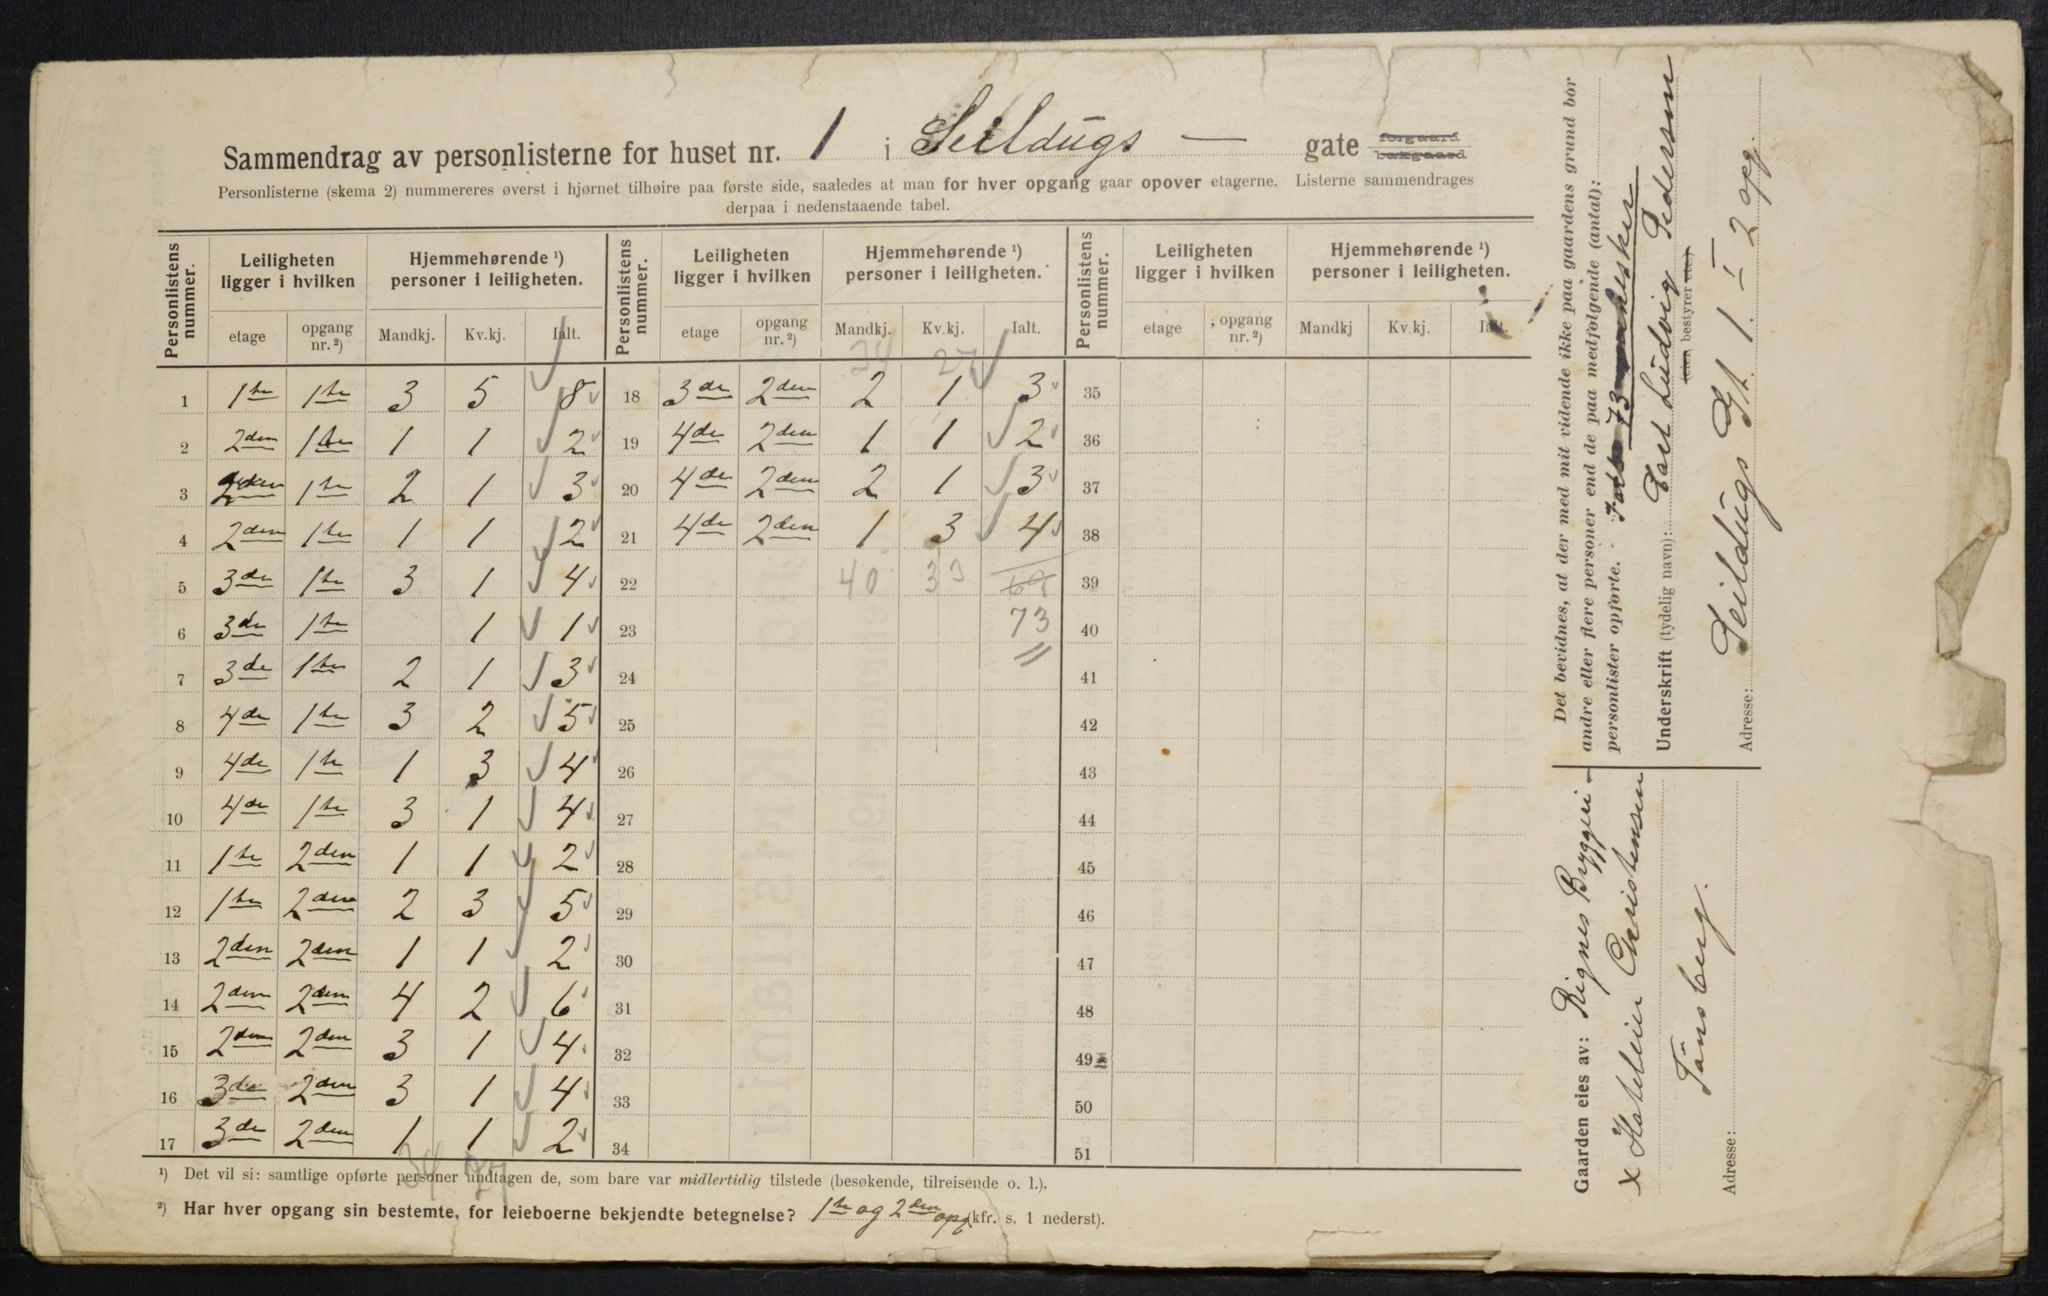 Sammendrag av personlisterne for huset nr. 1 i Seildugs — gate forgaard bakgaard
Personlisterne (skema 2) nummereres øverst i hjørnet tilhøire paa første side, saaledes at man for hver opgang gaar opover etagerne. Listerne sammendrages
derpaa i nedenstaaende tabel.
Personlistens nummer. Leiligheten ligger i hvilken Hjemmehørende ¹) personer i leiligheten. Personlistens nummer. Leiligheten ligger i hvilken Hjemmehørende ¹) personer i leiligheten. Personlistens nummer. Leiligheten ligger i hvilken Hjemmehørende ¹) personer i leiligheten.
etage opgang nr. ²) Mandkj. Kv.kj. Ialt. etage opgang nr. ²) Mandkj. Kv.kj. Ialt. etage opgang nr. ²) Mandkj Kv.kj. Ialt.
34 27
1 1ste 1ste 3 5 8 18 3de 2den 2 1 3 35
2 2den 1ste 1 1 2 19 4de 2den 1 1 2 36
3 2den 1ste 2 1 3 20 4de 2den 2 1 3 37
4 2den 1ste 1 1 2 21 4de 2den 1 3 4 38
5 3de 1ste 3 1 4 22 40 33 39
6 3de 1ste 1 1 23 73 40
7 3de 1ste 2 1 3 24 41
8 4de 1ste 3 2 5 25 42
9 4de 1ste 1 3 4 26 43
10 4de 1ste 3 1 4 27 44
11 1ste 2den 1 1 2 28 45
12 1ste 2den 2 3 5 29 46
13 2den 2den 1 1 2 30 47
14 2den 2den 4 2 6 31 48
15 2den 2den 3 1 4 32 49
16 3de 2den 3 1 4 33 50
17 3de 2den 1 1 2 34 51
34 27
¹) Det vil si: samtlige opførte personer undtagen de, som bare var midlertidig tilstede (besøkende, tilreisende o. l.).
²) Har hver opgang sin bestemte, for leieboerne bekjendte betegnelse? 1ste og 2den opg (kfr. s. 1 nederst).
Det bevidnes, at der med mit vidende ikke paa gaardens grund bor
andre eller flere personer end de paa medfølgende (antal):
personlister opførte. 73 mennesker
Underskrift (tydelig navn): Carl Ludvig Pedersen
(eier) bestyrer
Adresse: Seildugs Gt. 1. I 2 opg.
Gaarden eies av: Rignes Byggeri
x Hoteleier Christensen
Tønsberg.
Adresse: